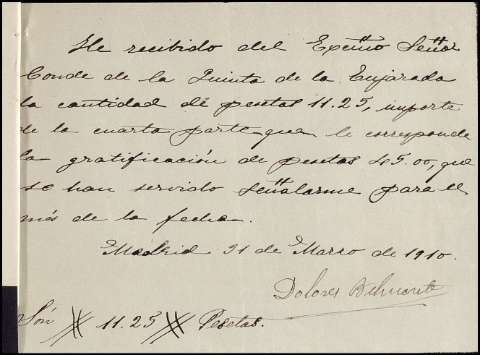 He recibido del Excmo Señor
Conde de la Quinta de la Enjarada
la cantidad de pesetas 11.25, importe
de la cuarta parte que le corresponde
la gratificación de pesetas 45.00, que
se han servido señalarme para el
més de la fecha.
Madrid 31 de Marzo de 1910.
Dolores Belmonte
Són 11.25 Pesetas.